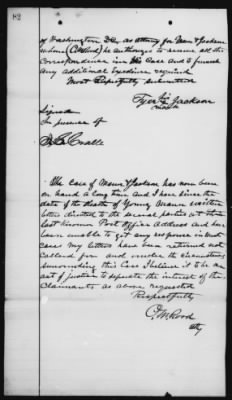 82
of Washington D.C. as attorney for Mann & Jackson
whom (C W Wood) he authorizes to secure all the
Correspondence in this Case and to furnish
any additional evidence required
Most Respectfully Submitted
Jackson
Signed
In presence of
The case of Mann & Jackson has now been
on hand a long time and I have since the
date of the death of Young Mann written
letters directed to the several parties to their
last known Post Office Address and have
been unable to get any response in each
case my letters have been returned not
called for and under the circumstances
surrounding this Case I believe it to be an
act of justice to separate the interest of the
Claimants as above requested
Respectfully
Wood
Atty